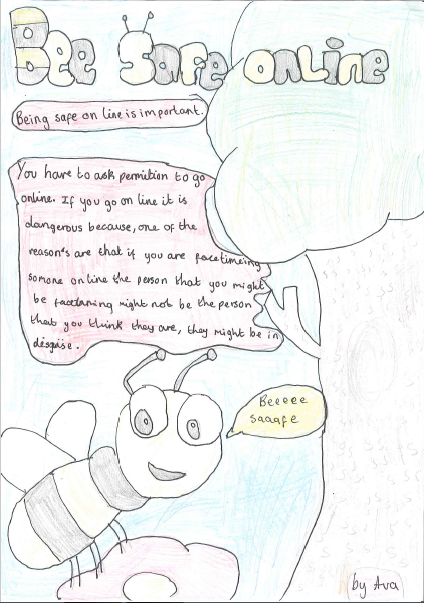 Bee Safe online
Being safe on line is important.
You have to ask permition to go
online. If you go on line it is
dangerous because, one of the
reason's are that if you are facetimeing
somone online the person that you might
be facetaming might not be the person
that you think they are, they might be in
disgise.
Beeeee
saaafe
by Ava